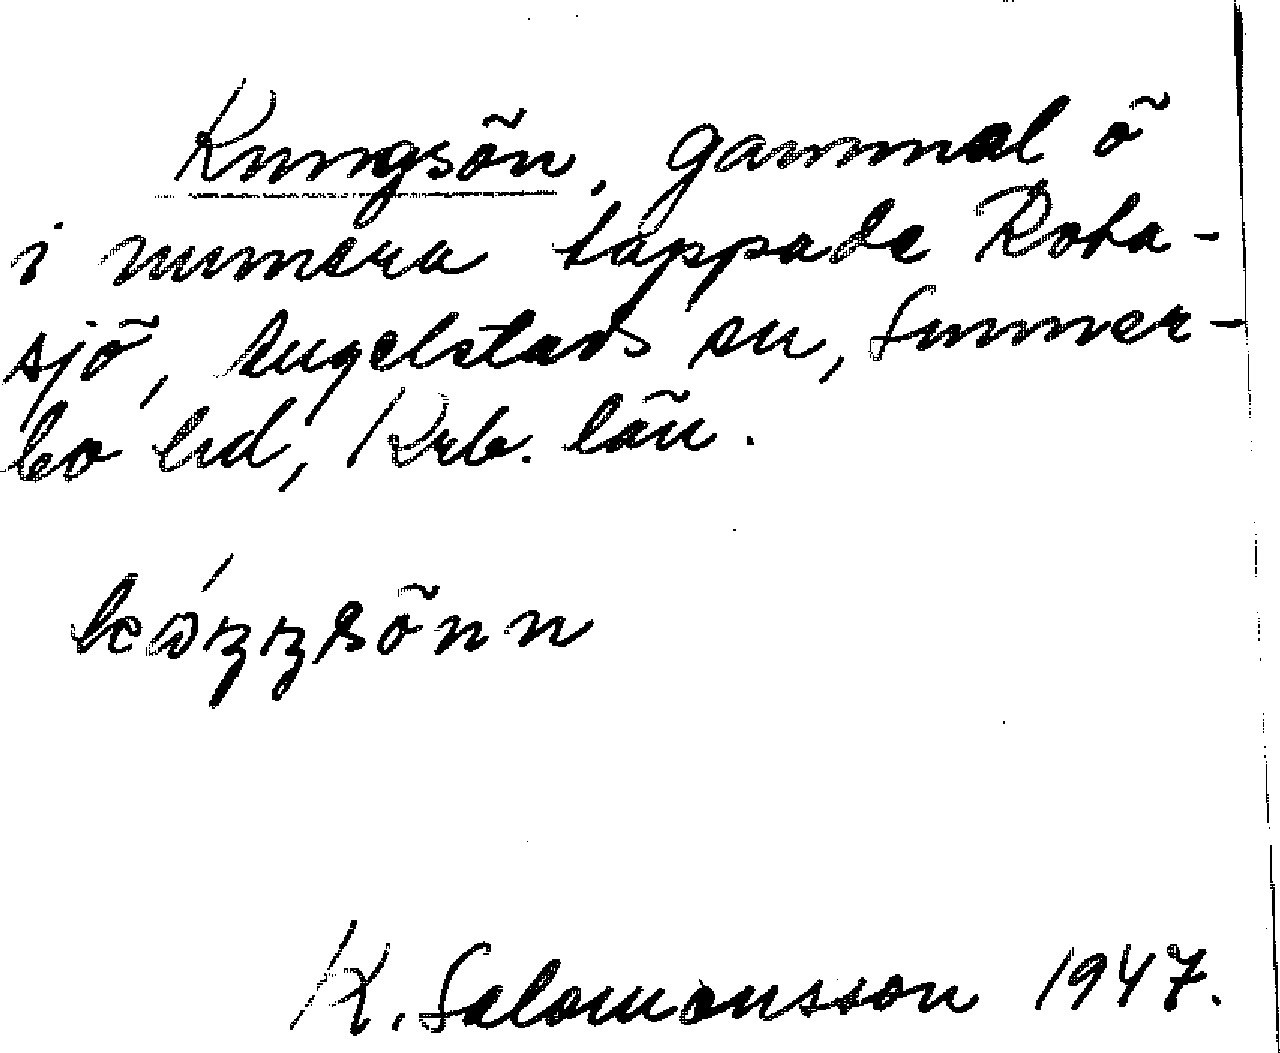 Kungsön, gammal ö
i numera tappade Rota-
sjö, Angelstads sn, Sunner-
bo hd, Krb. län.
K. Salomonsson 1947.